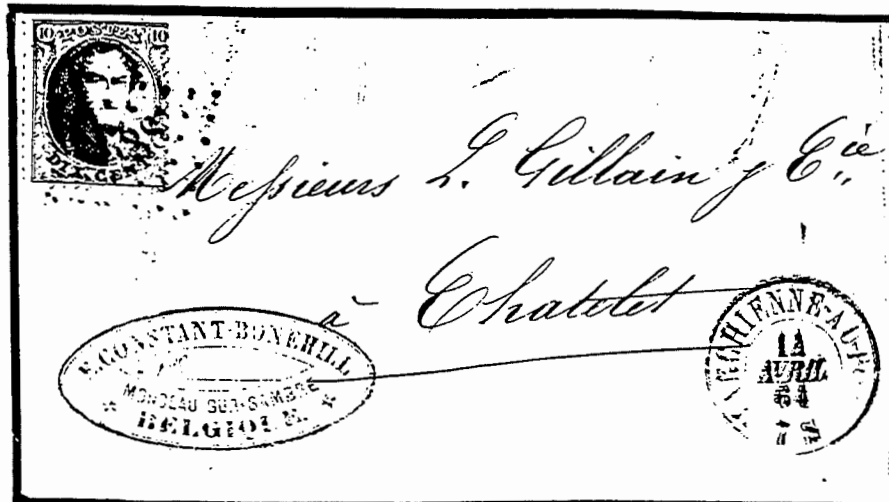 10 POSTES 10
DIX CENT
Messieurs L. Gillain & Cie
à Chatelet
F. CONSTANT-BONEHILL
MONCEAU SUR-SAMBRE
BELGIQUE
MARCHIENNE-AU-P
AVRIL